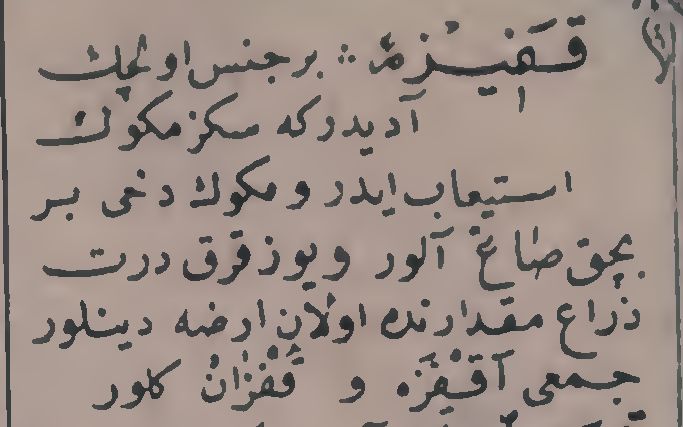 قَفِيزْ م ∴ بر جنس اولچك
آديدركه سكز مكوك
استيعاب ايدر و مكوك دخى بر
بچق صاع آلور و يوز قرق درت
ذراع مقدارنده اولان ارضه دينلور
جمعى آقْفِزَه و قُفْزَانْ كلور